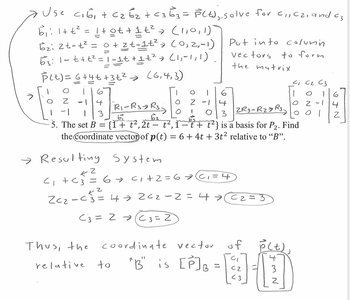 → Use c₁b⃗₁ + c₂b⃗₂ + c₃b⃗₃ = p⃗(t), solve for c₁, c₂, and c₃
b⃗₁: 1+t² = 1+0t+1t² → (1,0,1)
b⃗₂: 2t-t² = 0+2t-1t² → (0,2,-1)
b⃗₃: 1-t+t² = 1-1t+1t² → (1,-1,1)
Put into column vectors to form the matrix
p⃗(t) = 6+4t+3t² → (6,4,3)
c₁ c₂ c₃
→ [1 0 1 | 6] [1 0 1 | 6] [1 0 1 | 6]
[0 2 -1 | 4] R₁-R₃→R₃ [0 2 -1 | 4] 2R₃-R₂→R₃ [0 2 -1 | 4]
[1 -1 1 | 3] [0 1 0 | 3] [0 0 1 | 2]
b⃗₁ b⃗₂ b⃗₃
5. The set B = {1 + t², 2t − t², 1 − t + t²} is a basis for P₂. Find
the coordinate vector of p(t) = 6 + 4t + 3t² relative to “B”.
→ Resulting System
c₁ + c₃ = 6 → c₁+2=6 → c₁=4
2c₂-c₃ = 4 → 2c₂-2 = 4 → c₂=3
c₃ = 2 → c₃=2
Thus, the coordinate vector of p⃗(t),
relative to "B" is [P⃗]B = [c₁ c₂ c₃] = [4 3 2]